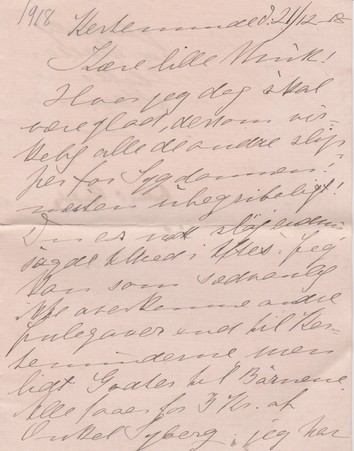 1918
Kerteminde d. 21/12-18
Kære lille Mink!
Hvor jeg dog skal
være glad, dersom vir-
kelig alle de andre slip
per for Sygdommen!
næsten ubegribeligt!
Du er nok sløj endnu
sagde Alhed i Aftes. Jeg
kan som sædvanlig
ikke overkomme andre
Julegaver end til Ker-
teminderne men
lidt Godter til Börnene
Alle faaer for 3 Kr. af
Onkel Syberg, jeg har